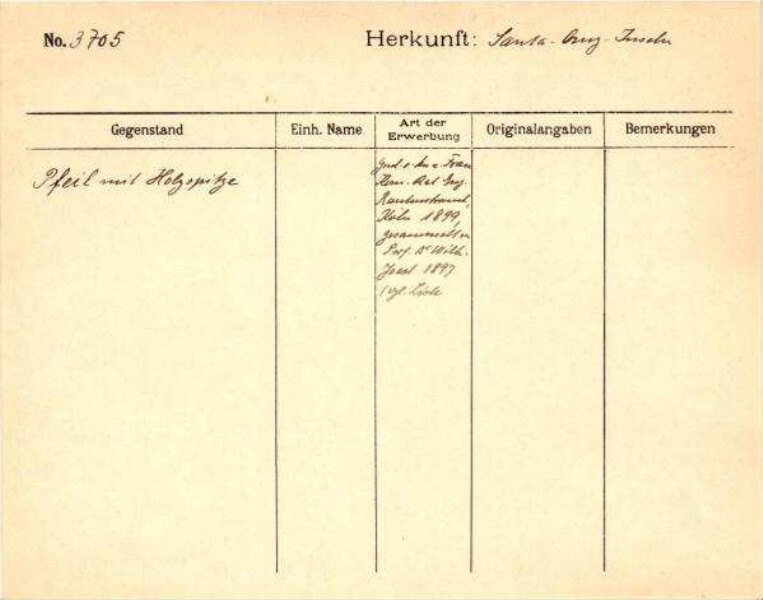 No. 3705
Herkunft: Santa-Cruz-Inseln
Gegenstand
Einh. Name
Art der Erwerbung
Originalangaben
Bemerkungen
Pfeil mit Holzspitze
Frau
Kom. Rat Eug.
Rautenstrauch,
Köln 1899,
gesammelt v.
Prof. Dr Wilh.
Joest 1897
(vgl. Liste